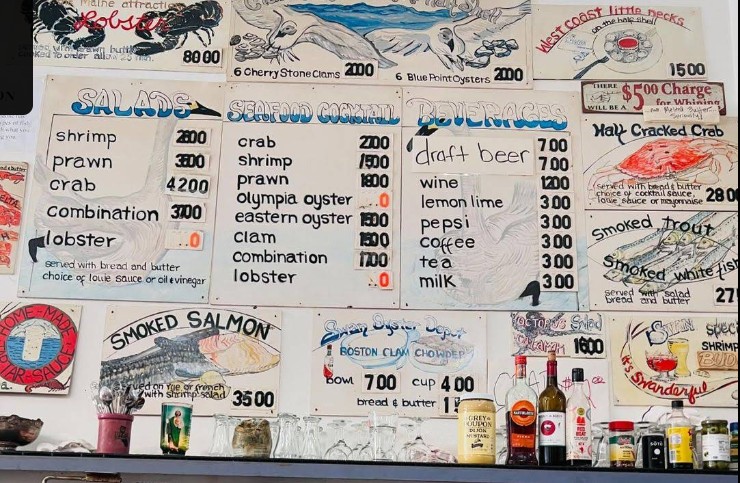 Maine attraction
Lobster
8000
6 Cherry Stone Clams 2000
6 Blue Point Oysters 2000
West coast little necks
on the half shell
1500
THERE WILL BE A $5.00 Charge for Whining
SALADS
shrimp 2800
prawn
crab 4200
combination 3700
lobster 0
served with bread and butter
choice of louie sauce or oil & vinegar
SEAFOOD COCKTAIL
crab
shrimp 1500
prawn 1800
olympia oyster 0
eastern oyster 1500
clam 1500
combination 1700
lobster 0
BEVERAGES
draft beer 700
700
wine 1200
lemon lime 300
pepsi 300
coffee 300
tea 300
milk 300
Half Cracked Crab
served with bread & butter
choice of cocktail sauce,
louie sauce or mayonnaise
2800
Smoked trout
Smoked white fish
served with salad
bread and butter
27
HOME-MADE
TAR-SAUCE
SMOKED SALMON
served on rye or french
with shrimp salad 3500
Swan Oyster Depot
BOSTON CLAM CHOWDER
bowl 700 cup 400
bread & butter
Octopus Salad
1600
Swan Speci
SHRIMP
BUD
it's Swanderful
GREY POUPON
DIJON
MUSTARD